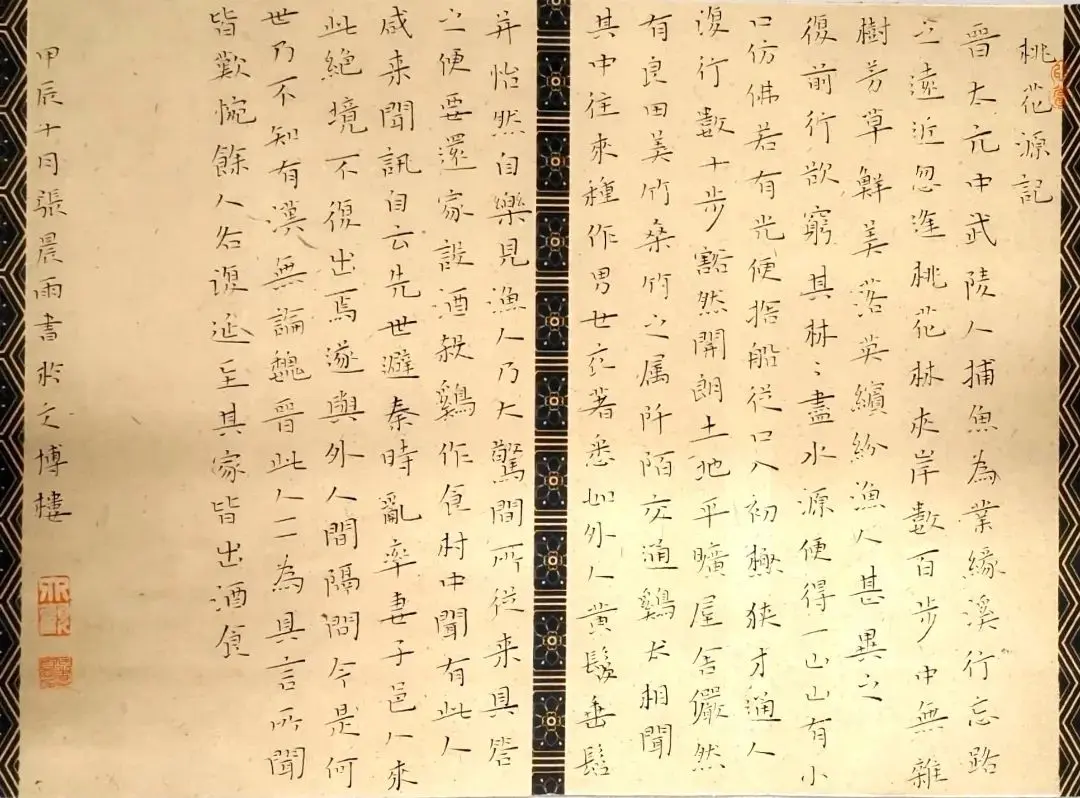 桃花源記
晉太元中武陵人捕魚為業緣溪行忘路
之遠近忽逢桃花林夾岸數百步中無雜
樹芳草鮮美落英繽紛漁人甚異之
復前行欲窮其林〻盡水源便得一山山有小
口仿佛若有光便捨船從口入初極狹才通人
復行數十步豁然開朗土地平曠屋舍儼然
有良田美竹桑竹之属阡陌交通鷄犬相聞
其中往來種作男女衣著悉如外人黄髮垂髫
并怡然自樂見漁人乃大驚問所從来具答
之便要還家設酒殺鷄作食村中聞有此人
咸来問訊自云先世避秦時亂率妻子邑人來
此絶境不復出焉遂與外人間隔問今是何
世乃不知有漢無論魏晉此人一一為具言所聞
皆歎惋餘人各復延至其家皆出酒食
甲辰十月張晨雨書於文博樓